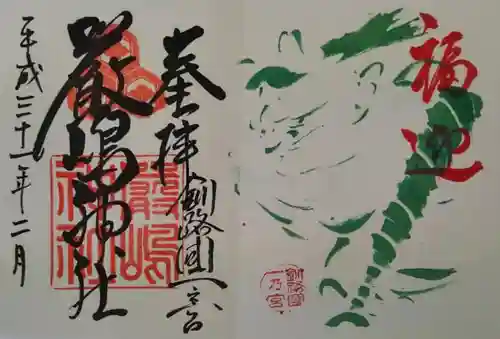 奉拝
釧路國一之宮
厳嶋神社
平成三十一年二月
厳嶋
神社
福
迎
釧路國
一乃宮